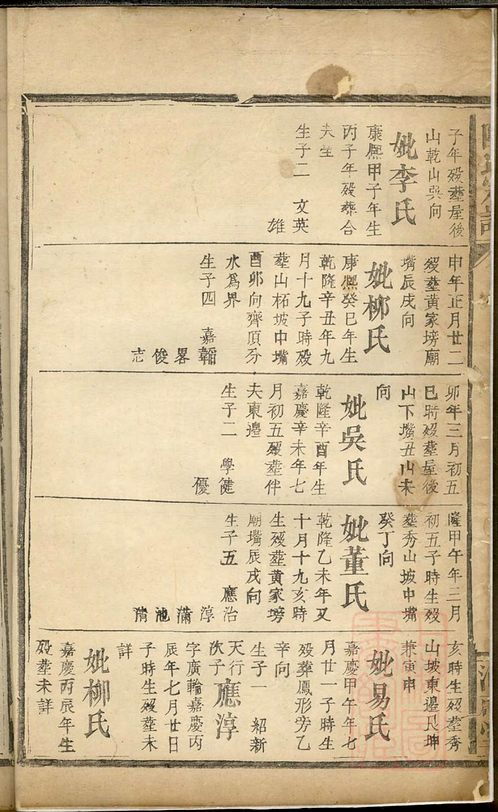 子年歿葬屋後
山乾山巽向
妣李氏
康熙甲子年生
丙子年歿葬合
夫塋
生子二 文英
雄
申年正月廿二
歿葬黄家塝廟
嘴辰戌向
妣柳氏
康熙癸巳年生
乾隆辛丑年九
月十九子時歿
葬山柘坡中嘴
酉卯向齊頂分
水爲界
生子四 嘉
畧俊志
卯年三月初五
巳時歿葬屋後
山下嘴丑山未
向
妣吳氏
乾隆辛酉年生
嘉慶辛未年七
月初五歿葬伴
夫東邊
生子二 學健
優
隆甲午年三月
初五子時生歿
葬秀山坡中嘴
癸丁向
妣董氏
乾隆乙未年又
十月十九亥時
生歿葬黄家塝
廟嘴辰戌向
生子五 應治
淳滿池
亥時生歿葬秀
山坡東邊艮坤
兼寅申
妣易氏
嘉慶甲午年七
月廿一子時生
歿葬鳳形旁乙
辛向
生子一 紹新
天行
次子應淳
字廣輪嘉慶丙
辰年七月廿日
子時生歿葬未
詳
妣柳氏
嘉慶丙辰年生
歿葬未詳